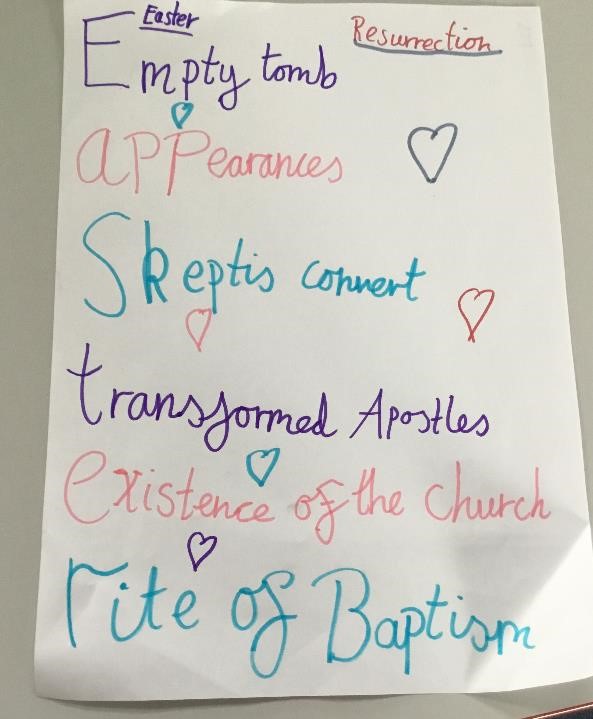 Easter
Resurrection
Empty tomb
appearances
Skeptis convert
transformed Apostles
existence of the church
rite of Baptism